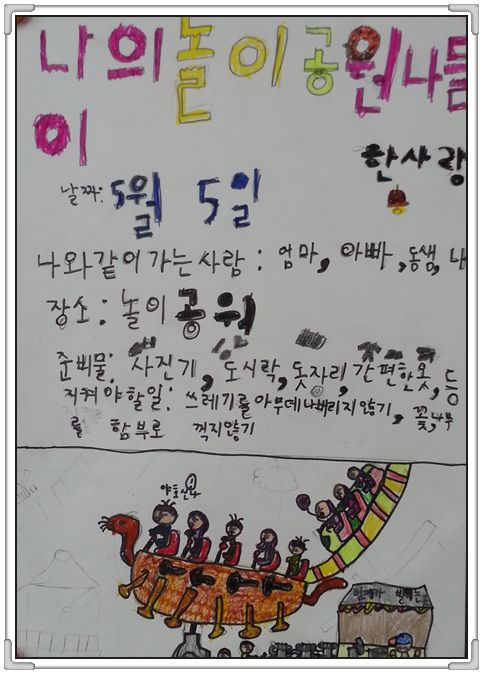 나의놀이공원나들
이
한사랑
날짜: 5월 5일
나와같이가는사람: 엄마, 아빠, 동생, 나
장소: 놀이공원
준비물: 사진기, 도시락, 돗자리, 간편한옷, 등
지켜야할일: 쓰레기를아무데나버리지않기, 꽃,나무
를 함부로 꺽지않기
야호신나